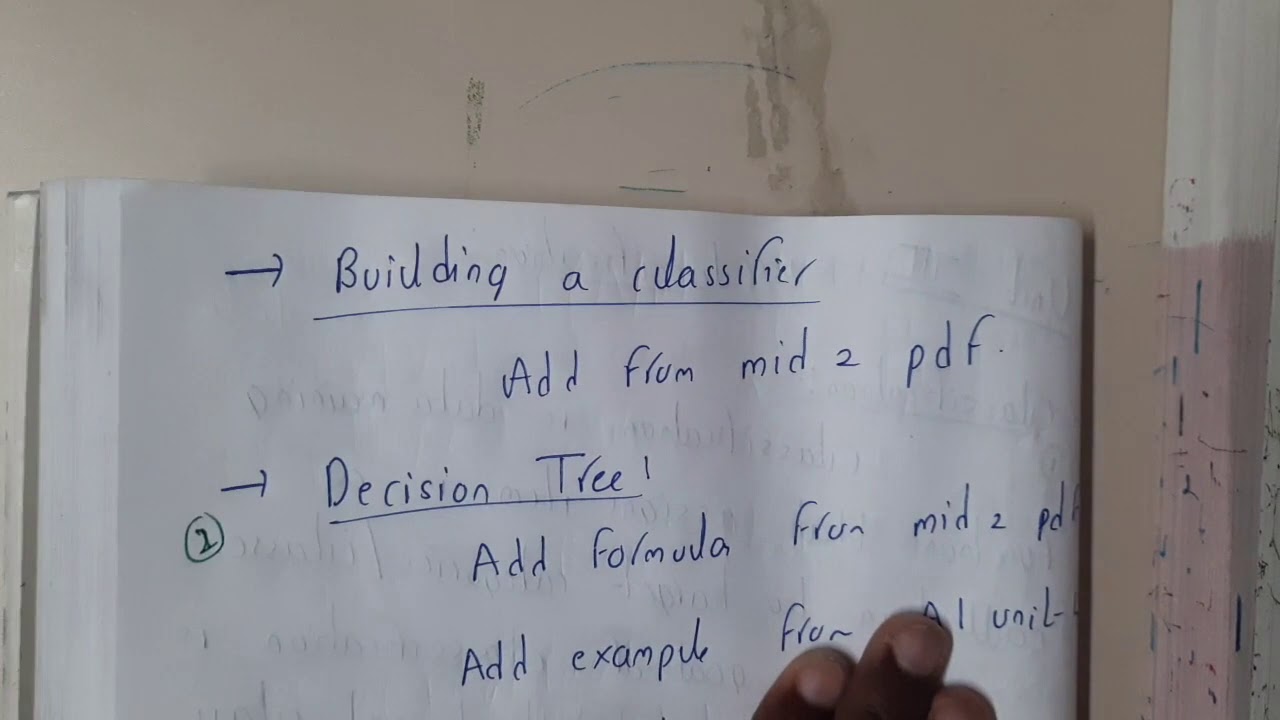 → Building a classifier
Add from mid 2 pdf.
→ Decision Tree!
② Add formula from mid 2 pdf
Add example from AI unit-